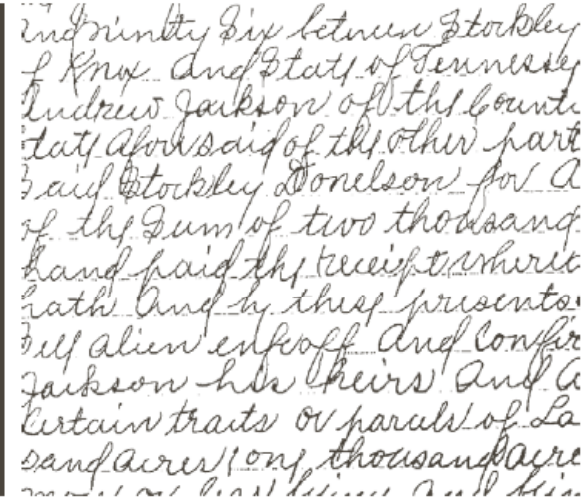 and ninity Six between Stockley
of Knox and State of Tennessey
Andrew Jackson of the Count
tate aforesaid of the other part
Said Stockley Donelson for a
of the Sum of two thousand
hand paid the receipt where
hath and by these presents
Sell alien enfeoff and confir
Jackson his heirs and a
Certain traits or parcels of La
sand acres one thousand acre
more or less lying and